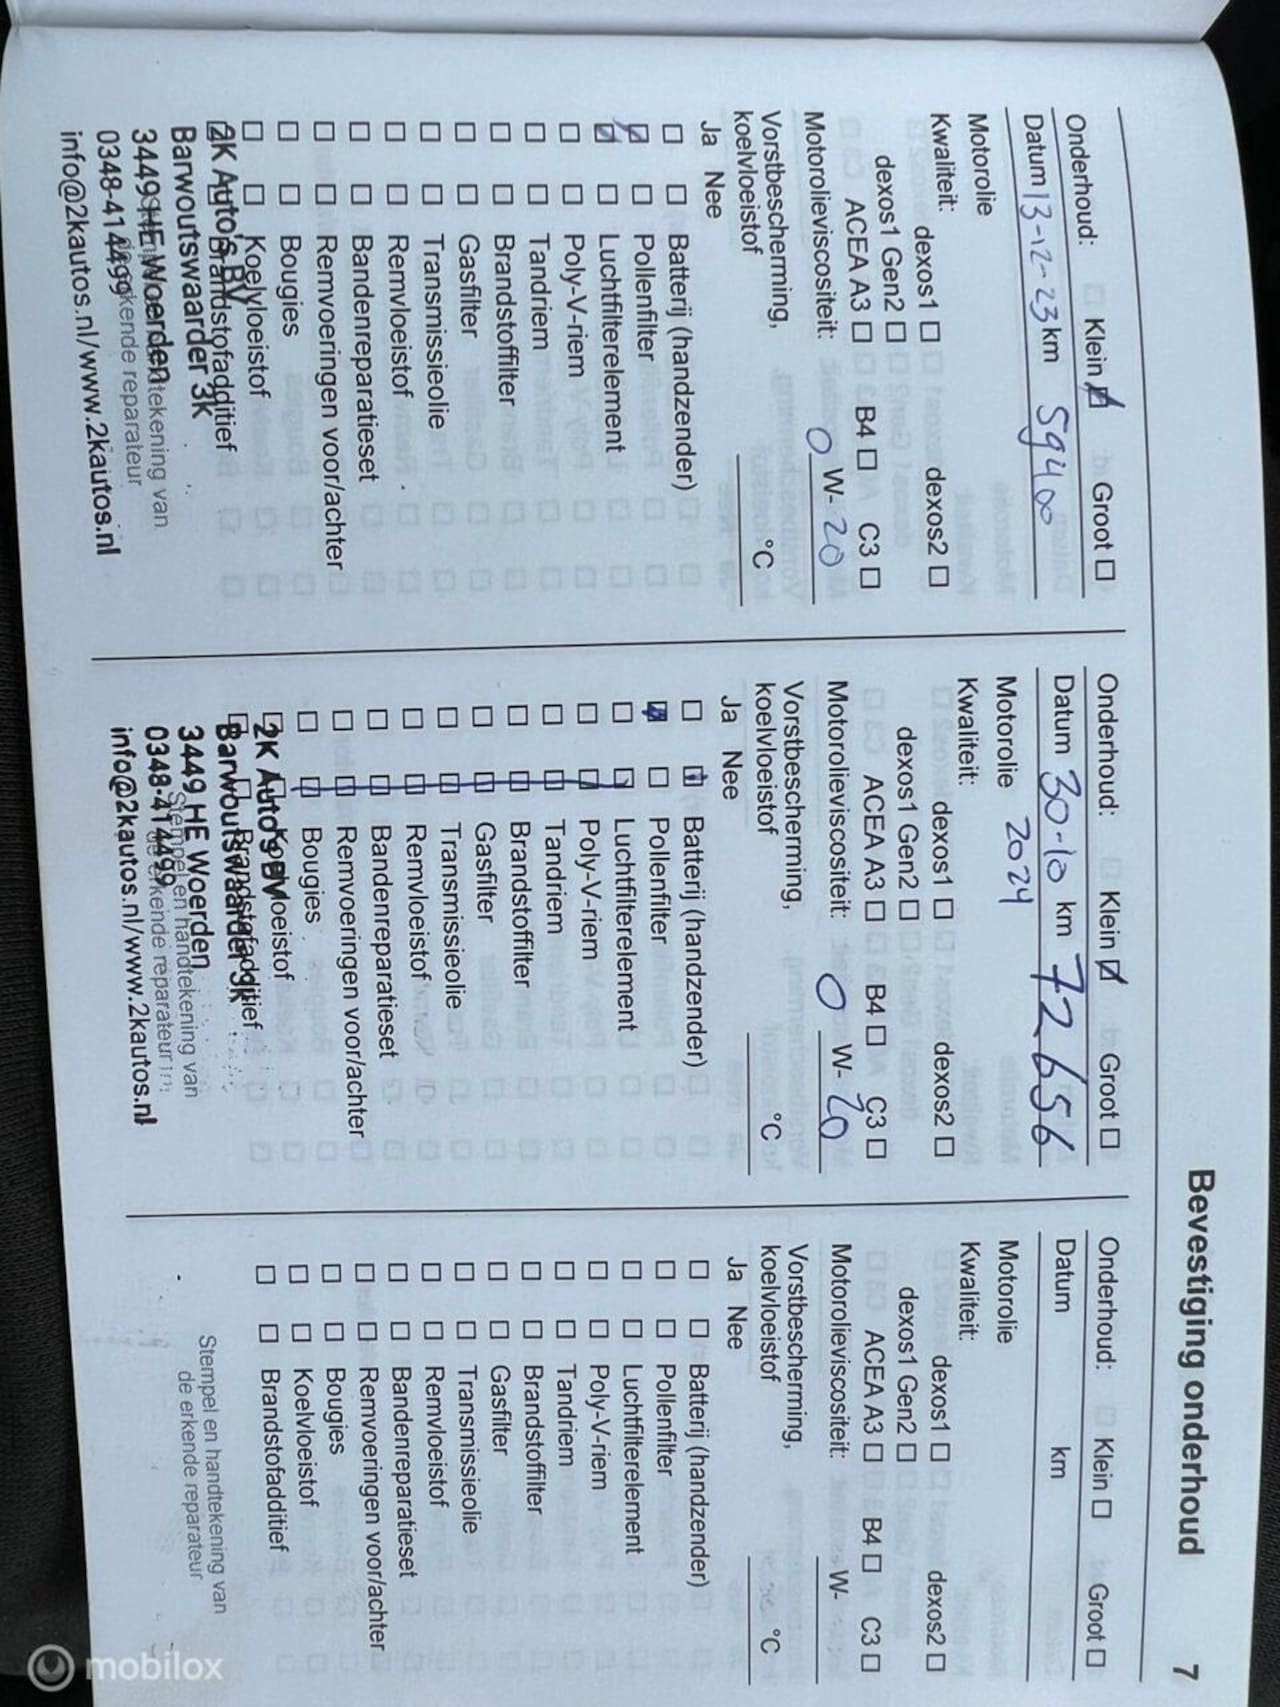 Bevestiging onderhoud 7
Onderhoud: ☐ Klein ☑ Groot ☐
Datum 13-12-23 km 59400
Motorolie
Kwaliteit: dexos1 ☐ dexos2 ☐
dexos1 Gen2 ☐
ACEA A3 ☐ B4 ☐ C3 ☐
Motorolieviscositeit: 0 W- 20
Vorstbescherming,
koelvloeistof °C
Ja Nee
☐ ☐ Batterij (handzender)
☑ ☐ Pollenfilter
☑ ☐ Luchtfilterelement
☐ ☐ Poly-V-riem
☐ ☐ Tandriem
☐ ☐ Brandstoffilter
☐ ☐ Gasfilter
☐ ☐ Transmissieolie
☐ ☐ Remvloeistof
☐ ☐ Bandenreparatieset
☐ ☐ Remvoeringen voor/achter
☐ ☐ Bougies
☐ ☐ Koelvloeistof
☐ ☐ Brandstofadditief
2K Auto's BV
Barwoutswaarder 3K
3449 HE Woerden
0348-414499
info@2kautos.nl/www.2kautos.nl
handtekening van
de erkende reparateur
Onderhoud: ☐ Klein ☑ Groot ☐
Datum 30-10 km 72656
Motorolie 2024
Kwaliteit: dexos1 ☐ dexos2 ☐
dexos1 Gen2 ☐
ACEA A3 ☐ B4 ☐ C3 ☐
Motorolieviscositeit: 0 W- 20
Vorstbescherming,
koelvloeistof °C
Ja Nee
☐ ☑ Batterij (handzender)
☑ ☐ Pollenfilter
☐ ☑ Luchtfilterelement
☐ ☑ Poly-V-riem
☐ ☑ Tandriem
☐ ☑ Brandstoffilter
☐ ☑ Gasfilter
☐ ☑ Transmissieolie
☐ ☑ Remvloeistof
☐ ☑ Bandenreparatieset
☐ ☑ Remvoeringen voor/achter
☐ ☑ Bougies
☐ ☐ Koelvloeistof
☐ ☐ Brandstofadditief
2K Auto's BV
Barwoutswaarder 3K
3449 HE Woerden
0348-414499
info@2kautos.nl/www.2kautos.nl
Stempel en handtekening van
de erkende reparateur
Onderhoud: ☐ Klein ☐ Groot ☐
Datum km
Motorolie
Kwaliteit: dexos1 ☐ dexos2 ☐
dexos1 Gen2 ☐
ACEA A3 ☐ B4 ☐ C3 ☐
Motorolieviscositeit: W-
Vorstbescherming,
koelvloeistof °C
Ja Nee
☐ ☐ Batterij (handzender)
☐ ☐ Pollenfilter
☐ ☐ Luchtfilterelement
☐ ☐ Poly-V-riem
☐ ☐ Tandriem
☐ ☐ Brandstoffilter
☐ ☐ Gasfilter
☐ ☐ Transmissieolie
☐ ☐ Remvloeistof
☐ ☐ Bandenreparatieset
☐ ☐ Remvoeringen voor/achter
☐ ☐ Bougies
☐ ☐ Koelvloeistof
☐ ☐ Brandstofadditief
Stempel en handtekening van
de erkende reparateur
mobilox